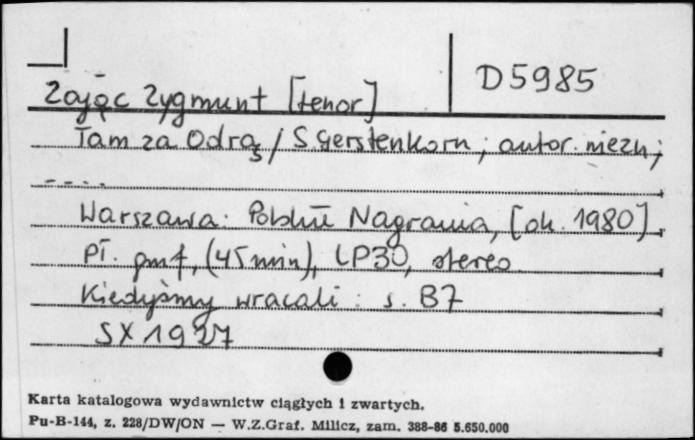 D5985
Zając Zygmunt [tenor]
Tam za Odrą / S. Gerstenkorn ; autor niezn ;
----.
Warszawa : Polskie Nagrania, [ok. 1980]
Pł. gmf, (45 min), LP30, stereo
Kiedyśmy wracali : s. B7
SX 1927
Karta katalogowa wydawnictw ciągłych i zwartych.
Pu-B-144, z. 228/DW/ON — W.Z.Graf. Milicz, zam. 388-86 5.650.000